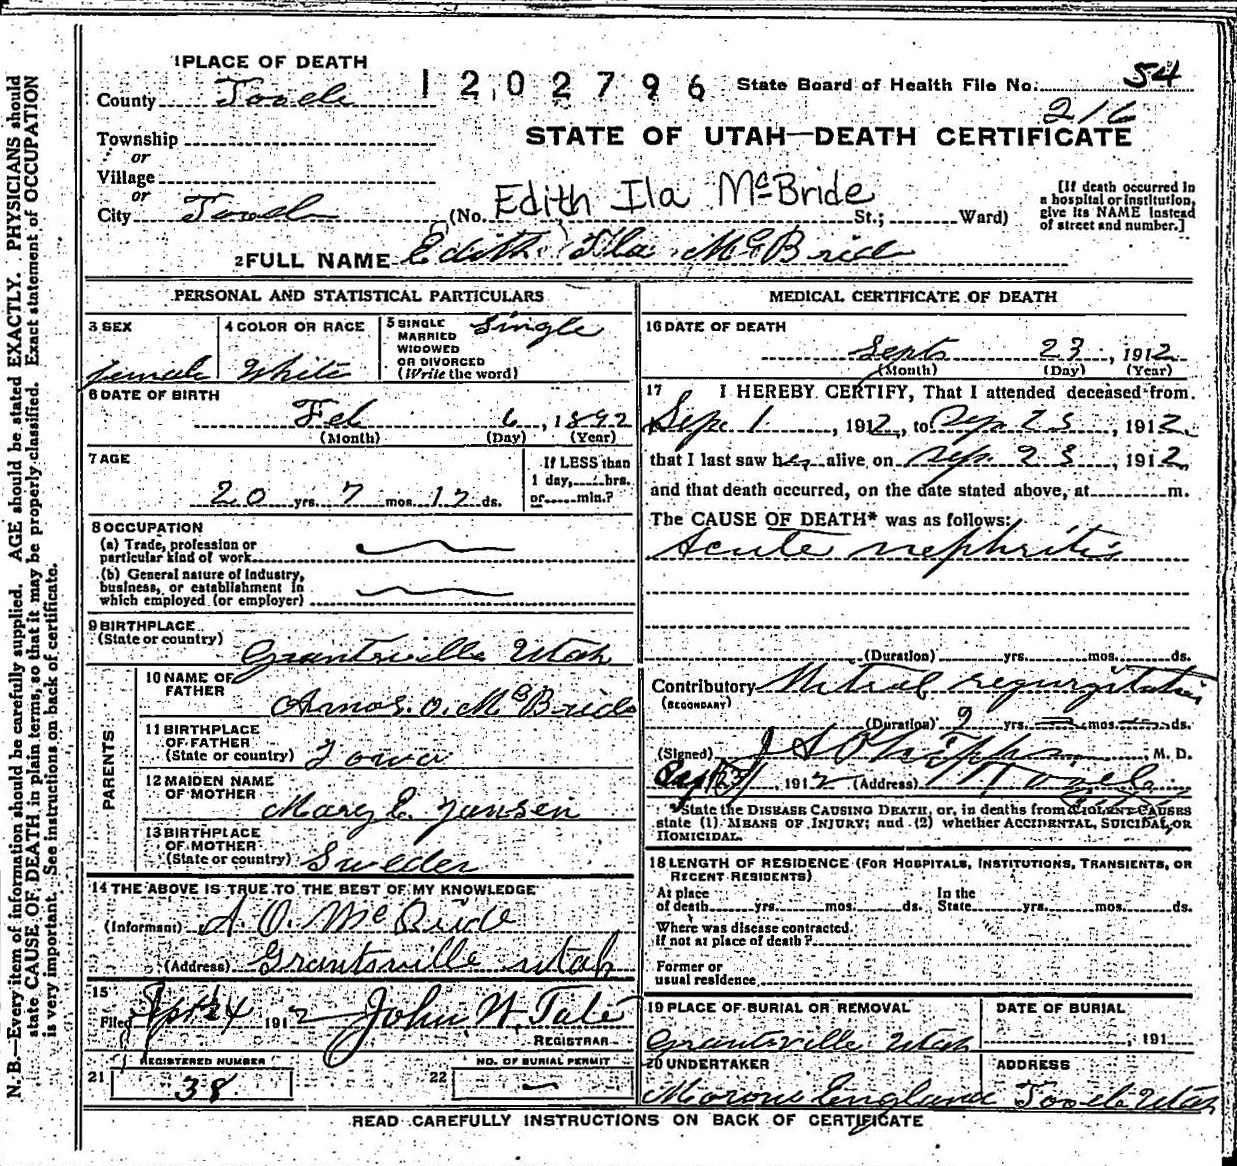 1 PLACE OF DEATH
1202796
State Board of Health File No. 54
County Tooele
216
STATE OF UTAH—DEATH CERTIFICATE
Township
or
Village
or
City Tooele (No. Edith Ila McBride St.; Ward)
[If death occurred in a hospital or institution, give its NAME instead of street and number.]
2 FULL NAME Edith Ila McBride
PERSONAL AND STATISTICAL PARTICULARS
3 SEX
female
4 COLOR OR RACE
White
5 SINGLE MARRIED WIDOWED OR DIVORCED (Write the word)
Single
6 DATE OF BIRTH
Feb 6, 1892
(Month) (Day) (Year)
7 AGE
20 yrs. 7 mos. 17 ds.
If LESS than 1 day, hrs. or min.?
8 OCCUPATION
(a) Trade, profession or particular kind of work
(b) General nature of industry, business, or establishment in which employed (or employer)
9 BIRTHPLACE
(State or country) Grantsville Utah
PARENTS
10 NAME OF FATHER
Amos. O. McBride
11 BIRTHPLACE OF FATHER
(State or country) Iowa
12 MAIDEN NAME OF MOTHER
Mary E. Jansen
13 BIRTHPLACE OF MOTHER
(State or country) Sweden
14 THE ABOVE IS TRUE TO THE BEST OF MY KNOWLEDGE
(Informant) A. O. McBride
(Address) Grantsville Utah
15
Filed Sept 24 1912 John W. Tate
REGISTRAR
REGISTERED NUMBER
21 38
NO. OF BURIAL PERMIT
22 —
MEDICAL CERTIFICATE OF DEATH
16 DATE OF DEATH
Sept 23, 1912
(Month) (Day) (Year)
17 I HEREBY CERTIFY, That I attended deceased from
Sep. 1, 1912, to Sep. 23, 1912.
that I last saw her alive on Sep. 23, 1912,
and that death occurred, on the date stated above, at m.
The CAUSE OF DEATH* was as follows:
Acute nephritis
(Duration) yrs. mos. ds.
Contributory Mitral regurgitation
(SECONDARY)
(Duration) 9 yrs. — mos. — ds.
(Signed) M. D.
Sep 23, 1912 (Address) Tooele
*State the DISEASE CAUSING DEATH, or, in deaths from VIOLENT CAUSES
state (1) MEANS OF INJURY; and (2) whether ACCIDENTAL, SUICIDAL, OR
HOMICIDAL.
18 LENGTH OF RESIDENCE (FOR HOSPITALS, INSTITUTIONS, TRANSIENTS, OR
RECENT RESIDENTS)
At place of death yrs. mos. ds. In the State yrs. mos. ds.
Where was disease contracted.
If not at place of death?
Former or
usual residence
19 PLACE OF BURIAL OR REMOVAL
Grantsville Utah
DATE OF BURIAL
, 191
20 UNDERTAKER
Morone England
ADDRESS
Tooele Utah
READ CAREFULLY INSTRUCTIONS ON BACK OF CERTIFICATE
N. B.—Every item of information should be carefully supplied. AGE should be stated EXACTLY. PHYSICIANS should
state CAUSE OF DEATH in plain terms, so that it may be properly classified. Exact statement of OCCUPATION
is very important. See instructions on back of certificate.